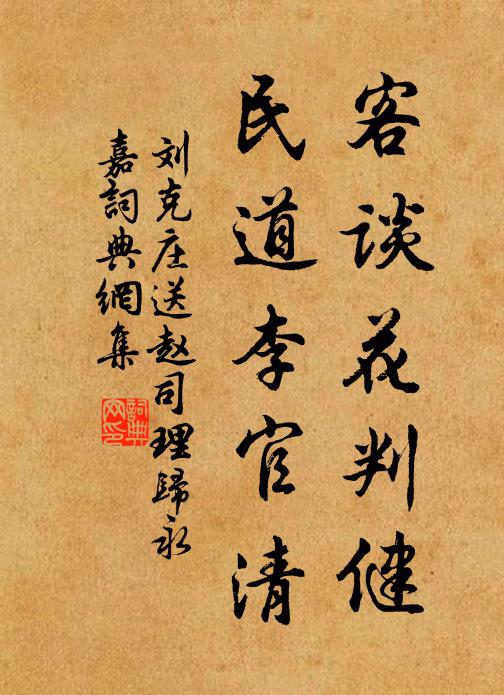 客谈花判健
民道李官清
刘克庄送赵司理歸永
嘉詞典網集
詞典網印